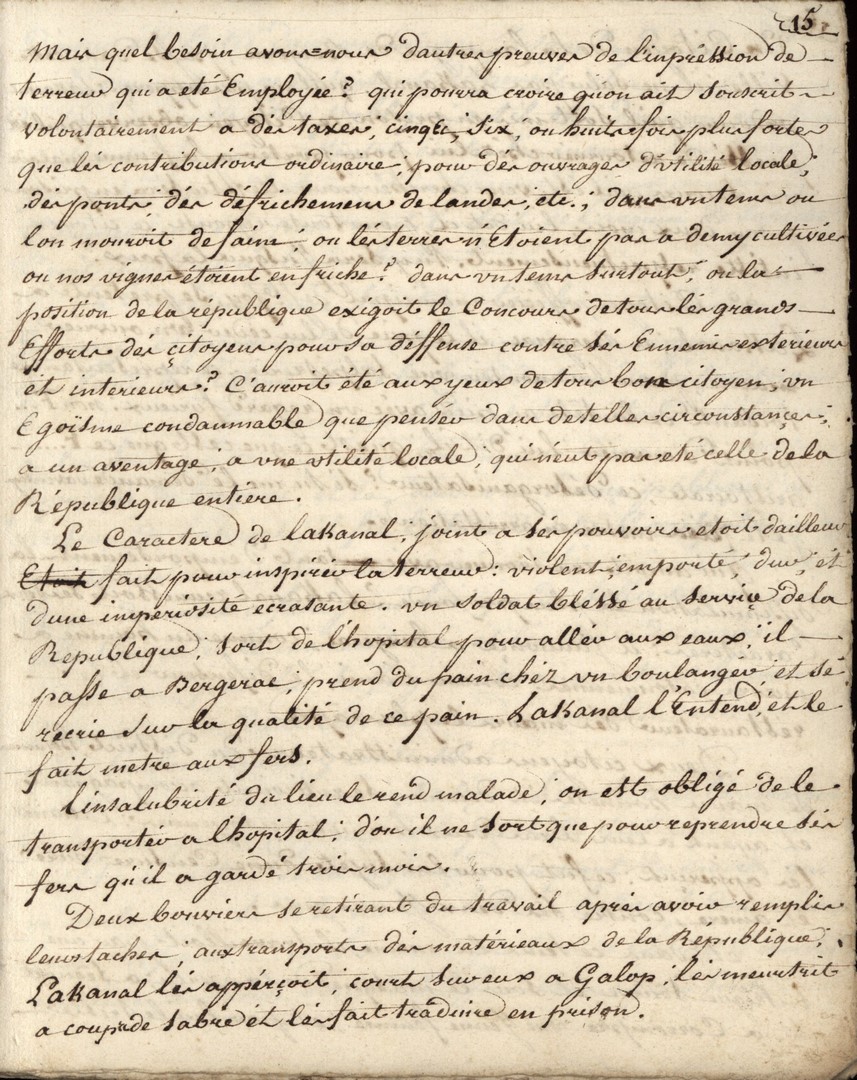 15
Mais quel besoin avons=nous dautres preuves de l'inpréssion de
terreur qui a eté Employée? qui pourra croire qu'on ait souscrit
volontairement a dés taxes, cinqc, six, ou huits fois plus fortes
que lés contributions ordinaire, pour dés ouvrages d'utilité locale,
dés ponts, dés défrichemens de landes, etc.; dans un tems ou
l'on mouroit de faim; ou lés terres n'Etoient pas a demy cultivées
ou nos vignes étoient en friche? dans un tems surtout, ou la
position de la république exigoit le Concours de tous lés grands
Efforts dés çitoyens pour sa déffense contre sés Ennemis exterieurs
et interieurs? C'auroit été aux yeux de tous bon citoyen, un
Egoïsme condamnable que pensér dans de telles circonstançes,
a un aventage, a une utilité locale, qui n'eut pas eté celle de la
République entiere.
Le Caractere de lakanal, joint a sés pouvoirs etoit dailleur
Etoit fait pour inspirér la terreur: violent, emporté, dur, ét
dune impériosité ecrasante. un soldat bléssé au serviçe de la
République, sort de l'hopital pour allér aux eaux, il
passe a Bergerac, prend du pain chéz un boulangér, et sé
recrie sur la qualité de ce pain. Lakanal l'Entend, et le
fait metre aux fers.
l'insalubrité du lieu le rend malade, on est obligé de le
transportér a l'hopital, d'ou il ne sort que pour reprendre sés
fers qu'il a gardé trois mois.
Deux bouviers se retirant du travail aprés avoir remplis
leurs taches, aux transports dés matérieaux de la République,
Lakanal lés appérçoit, court sur eux a Galop, lés meurtrit
a coups de sabre ét lés fait traduire en prison.